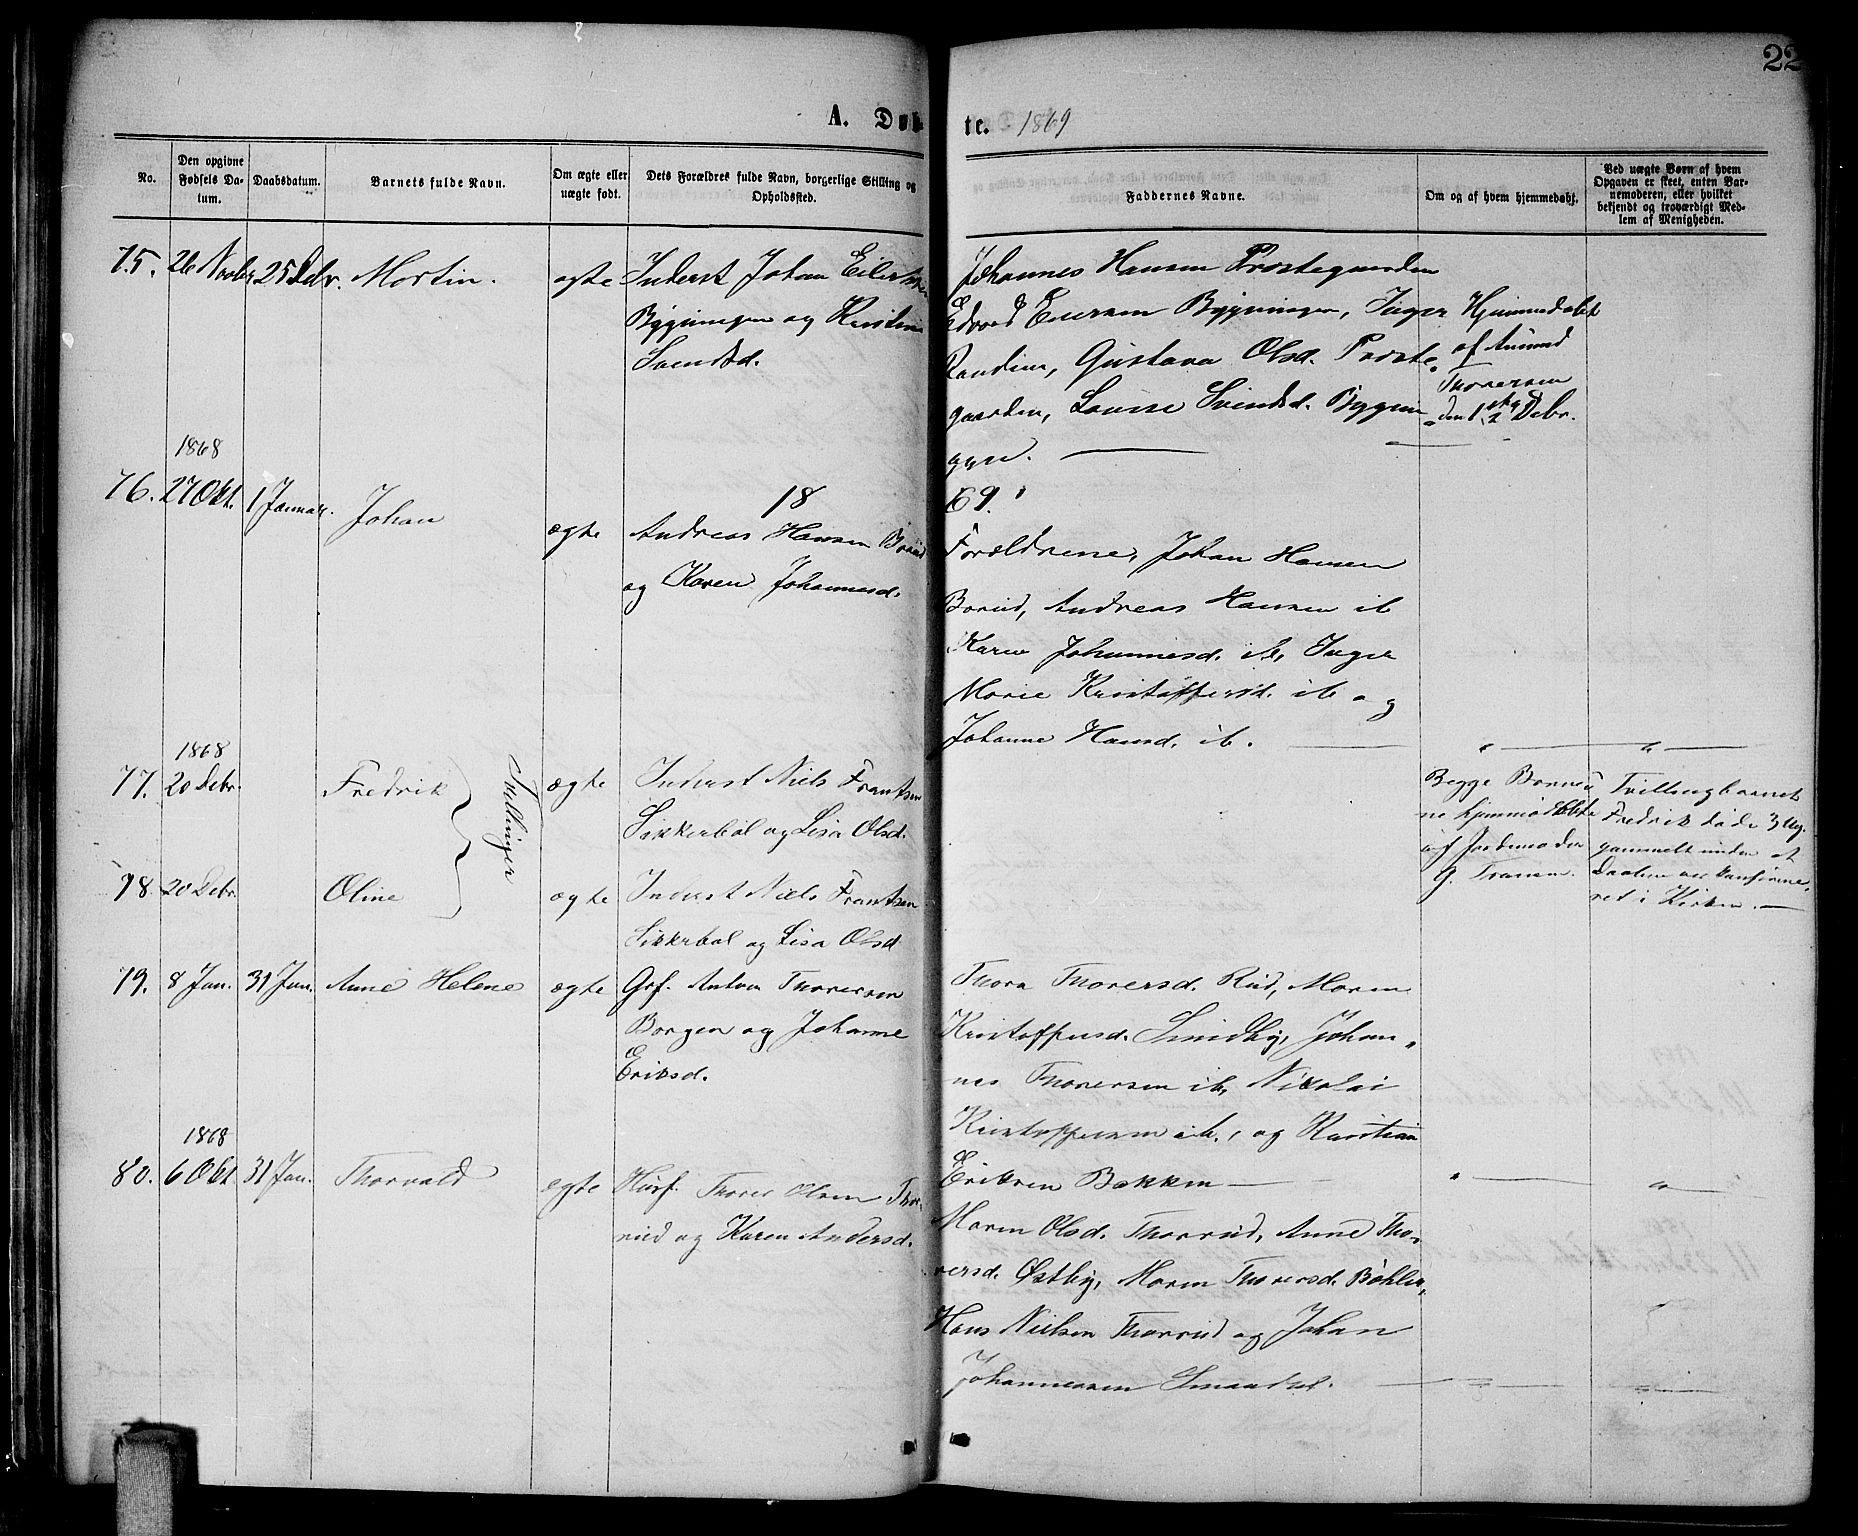 22
A. Døb-
te. 1869
No.
Den opgivne
Fødsels Da-
tum.
Daabsdatum.
Barnets fulde Navn.
Om ægte eller
uægte født.
Dets Forældres fulde Navn, borgerlige Stilling og
Opholdssted.
Faddernes Navne.
Om og af hvem hjemmedøbt.
Ved uægte Børn af hvem
Opgaven er skeet, enten Bar-
nemoderen, eller hvilket
bekjendt og troværdigt Med-
lem af Menigheden.
75. 26 Novbr 25 Debr. Martin. ægte Inderst Johan Eilertsen
Bygningen og Kristine
Svendsd.
Johannes Hansen Præstegaarden
Edvard Eversen Bygningen, Inger
Randine, Gustava Olsd. Præste„
gaarden, Louise Svendsd. Bygnin„
gen.
Hjemmedøbt
af Amund
Thoresen
den 1 Debr.
1868
76. 27 Okt. 1 Januar. Johan ægte
18
69.
Andreas Hansen Borud
og Karen Johannesd.
Forældrene, Johan Hansen
Borud, Andreas Hansen ib
Karen Johannesd. ib, Inger
Marie Kristoffersd. ib og
Johanne Hansd. ib.
1868
77. 20 Debr. Fredrik ægte Inderst Niels Frantsen
Sikkerbøl og Lisa Olsd.
Tvillinger
78. 20 Debr. Oline ægte Inderst Niels Frantsen
Sikkerbøl og Lisa Olsd
Begge Børne„
ne hjemmedøbte
af Jordemoder
G. Transen.
Tvillingbarnet
Fredrik døde 3 Ug.
gammelt uden at
Daaben var konfirme„
ret i Kirken.
79. 8 Jan. 31 Jan. Anne Helene ægte Grf. Anton Thoresen
Borgen og Johanne
Eriksd.
Thora Thoresd. Rud, Maren
Kristoffersd. Sundby, Johan„
nes Thoresen ib, Nikolai
Kristoffersen ib., og Kristian
Eriksen Bakken
1868
80. 6 Okt 31 Jan. Thorvald ægte Husf. Thorer Olsen Thor„
rud og Karen Andersd.
Maren Olsd. Thorrud, Anne Tho„
rersd. Østby, Maren Thorersd. Bøhler,
Hans Nielsen Thorrud og Johan
Johannessen Smaadal.